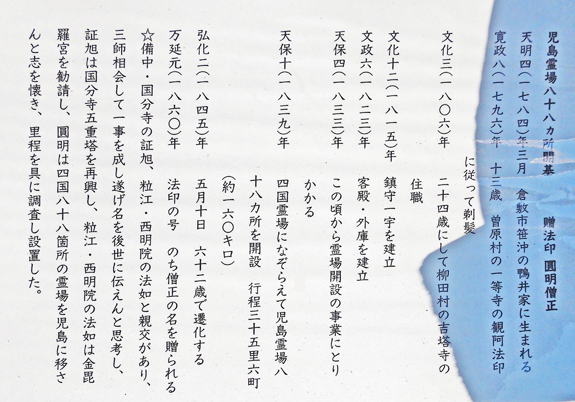 児島霊場八十八カ所開基　贈法印　圓明僧正
天明四(一七八四)年三月　倉敷市笹沖の鴨井家に生まれる
寛政八(一七九六)年　十三歳　曽原村の一等寺の観阿法印
に従って剃髪
文化三(一八〇六)年　二十四歳にして柳田村の吉塔寺の
住職
文化十二(一八一五)年　鎮守一宇を建立
文政六(一八二三)年　客殿・外庫を建立
天保四(一八三三)年　この頃から霊場開設の事業にとり
かかる
天保十(一八三九)年　四国霊場になぞらえて児島霊場八
十八カ所を開設　行程三十五里六町
(約一六〇キロ)
弘化二(一八四五)年　五月十日　六十二歳で遷化する
万延元(一八六〇)年　法印の号　のち僧正の名を贈られる
☆備中・国分寺の証旭、粒江・西明院の法如と親交があり、
三師相会して一事を成し遂げ名を後世に伝えんと思考し、
証旭は国分寺五重塔を再興し、粒江・西明院の法如は金毘
羅宮を勧請し、圓明は四国八十八箇所の霊場を児島に移さ
んと志を懐き、里程を具に調査し設置した。